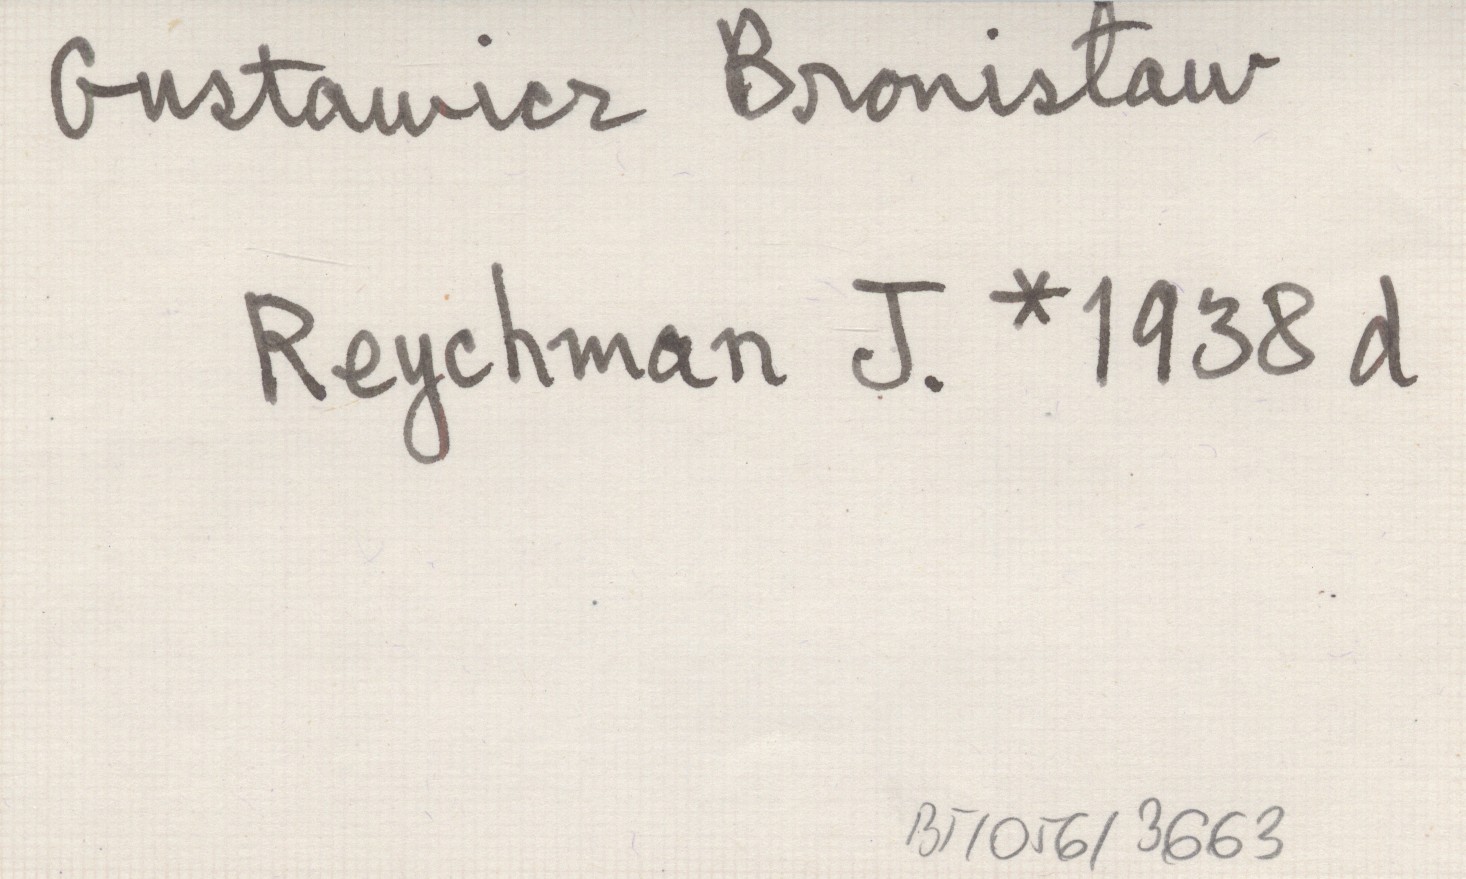 Gustawicz Bronisław
Reychman J. *1938 d
BT/056/3663